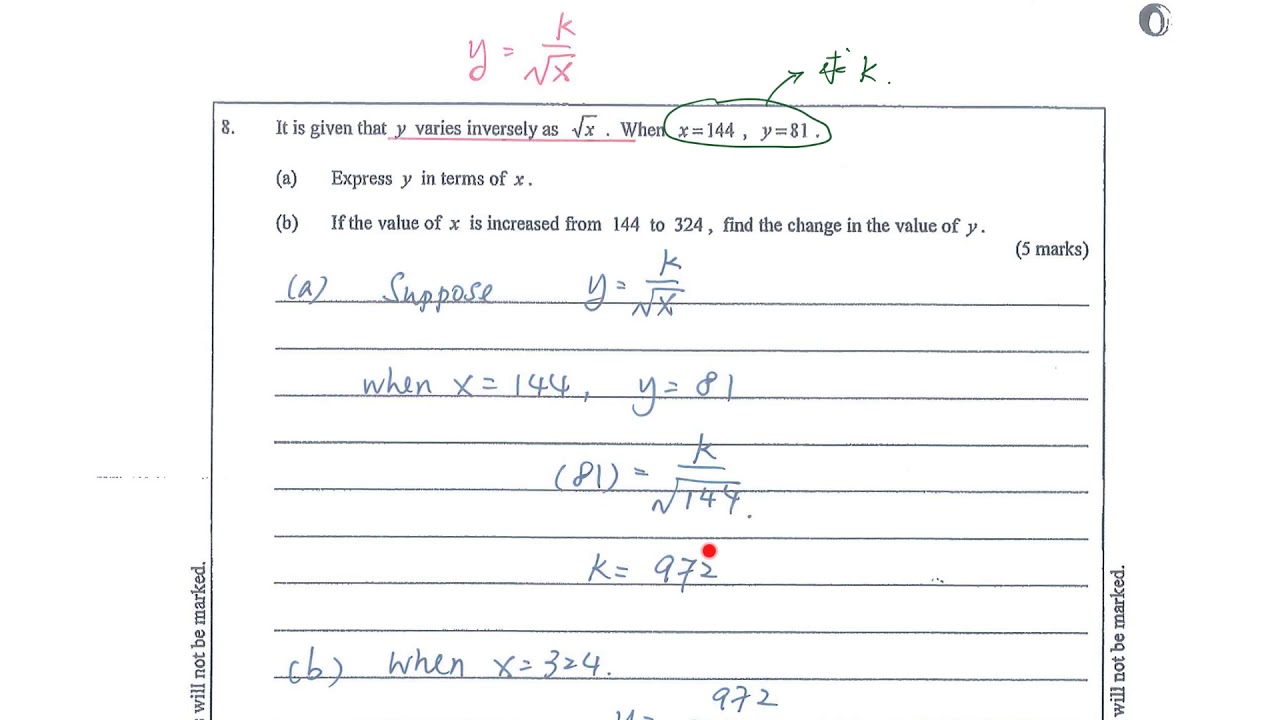 y = k/√x
求 k.
8. It is given that y varies inversely as √x . When x=144 , y=81 .
(a) Express y in terms of x .
(b) If the value of x is increased from 144 to 324 , find the change in the value of y .
(5 marks)
(a) Suppose y = k/√x
when x = 144, y = 81
(81) = k/√144.
k = 972
(b) When x = 324.
972
y =
will not be marked.
will not be marked.